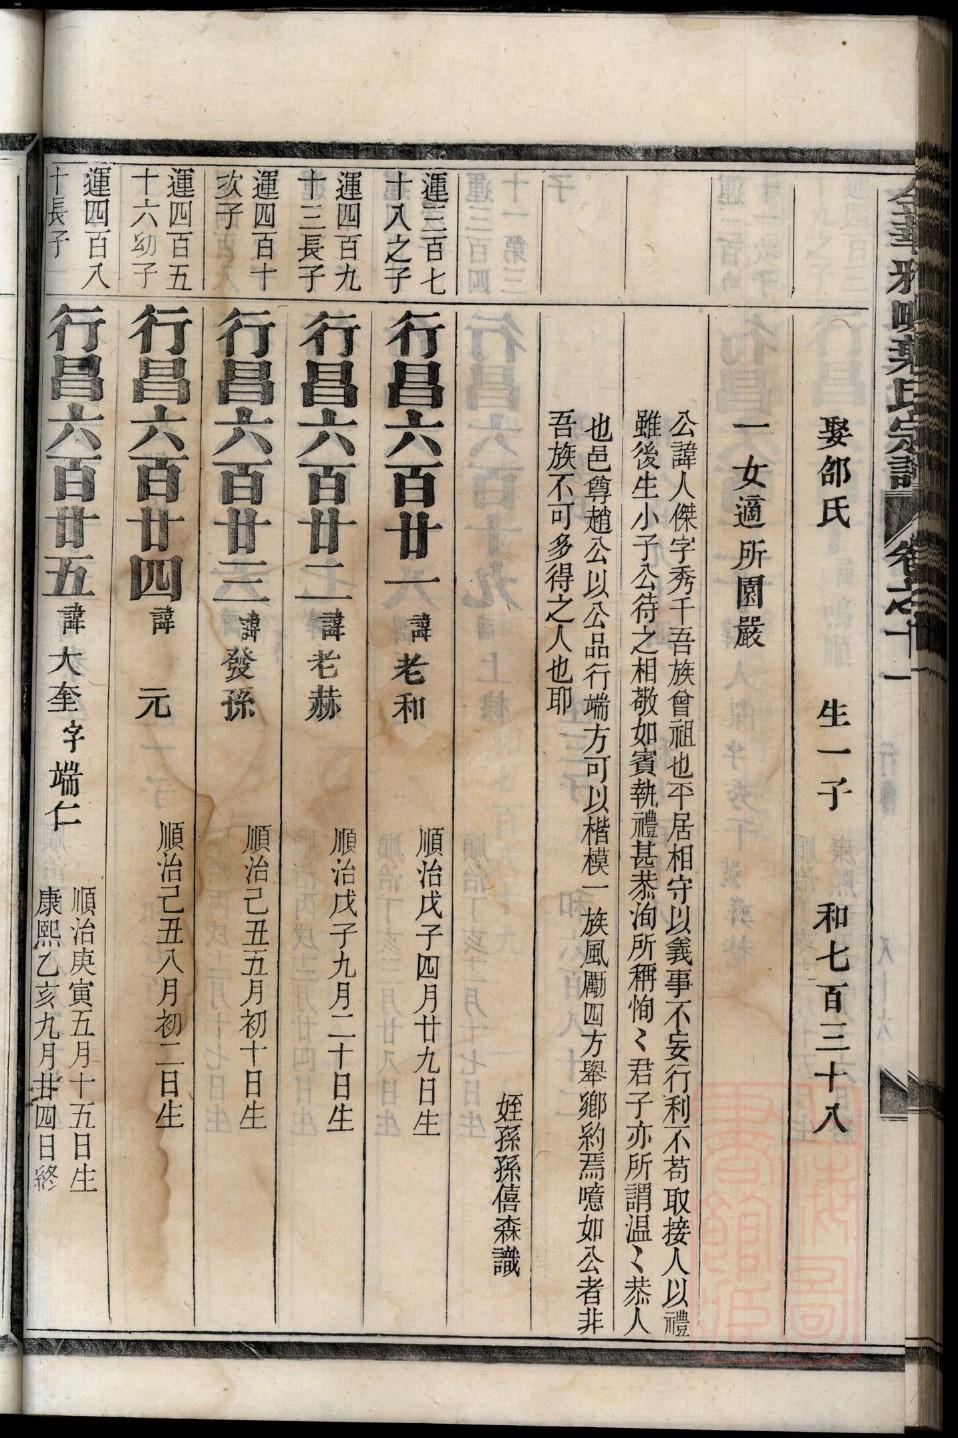 娶郃氏 生一子 和七百三十八
一女適所園嚴
公諱人傑字秀千吾族曾祖也平居相守以義事不妄行利不苟取接人以禮
雖後生小子公待之相敬如賓執禮甚恭洵所稱恂〻君子亦所謂温〻恭人
也邑尊趙公以公品行端方可以楷模一族風勵四方舉鄉約焉噫如公者非
吾族不可多得之人也耶
姪孫孫僖森識
運三百七
十八之子
行昌六百廿一 諱老和 順治戊子四月廿九日生
運四百九
十三長子
行昌六百廿二 諱老赫 順治戊子九月二十日生
運四百十
次子
行昌六百廿三 諱發孫 順治己丑五月初十日生
運四百五
十六幼子
行昌六百廿四 諱元 順治己丑八月初二日生
運四百八
十長子
行昌六百廿五 諱大奎字端仁 順治庚寅五月十五日生
康熙乙亥九月廿四日終